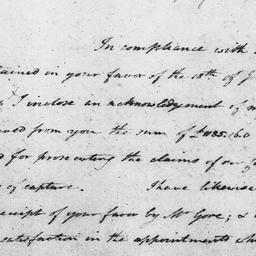 In compliance with
tained in your favor of the 18th of J
I inclose an acknowledgement of m
ved from you the sum of £1185.16.0
d for prosecuting the claims of our
of capture. I have likewise
ceipt of your favor by Mr Gore; &
satisfaction in the appointments wh